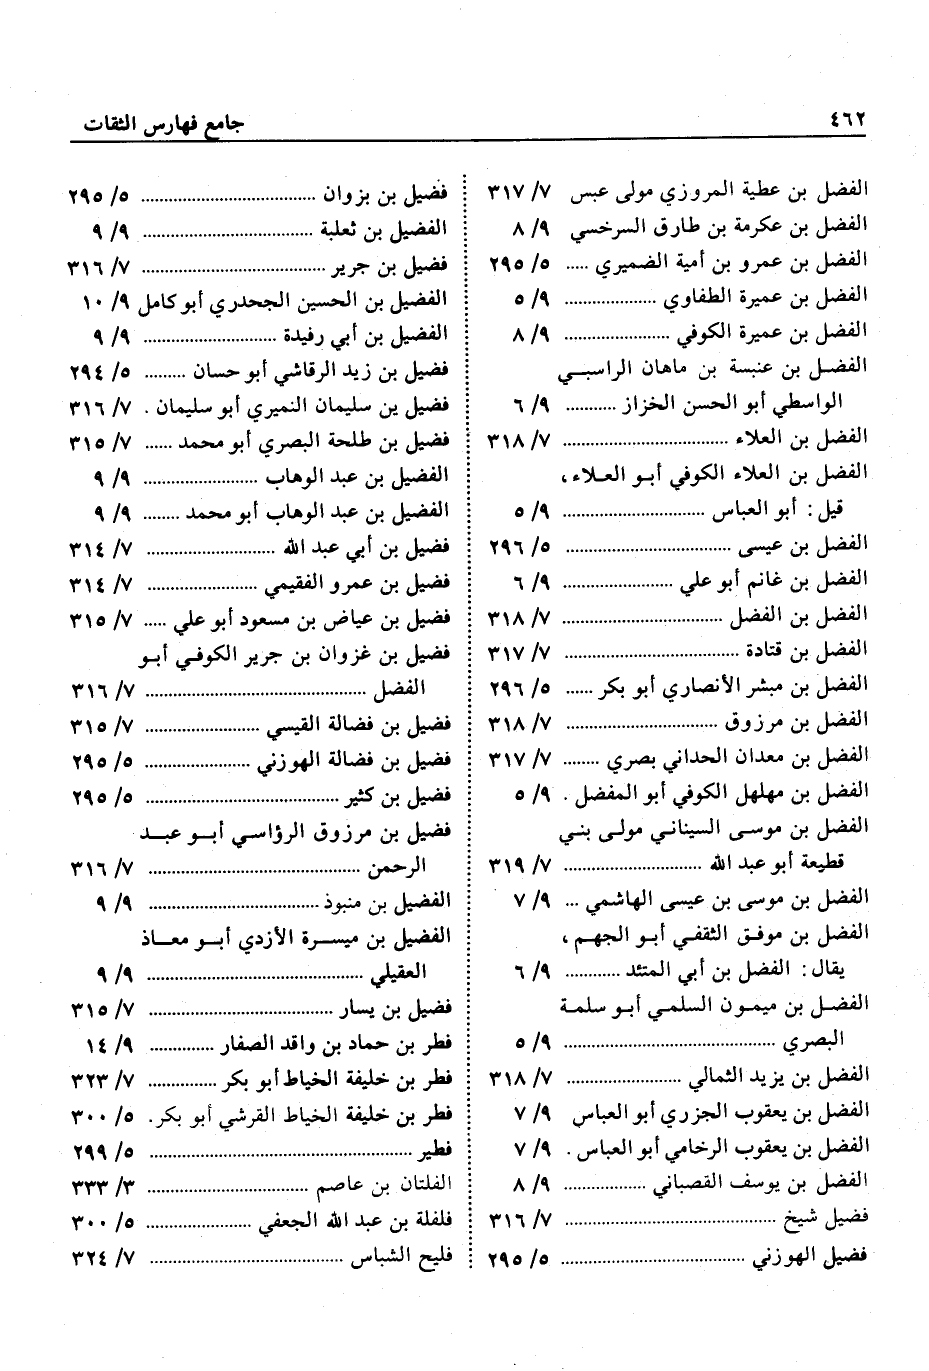 ٤٦٢
جامع فهارس الثقات
الفضل بن عطية المروزي مولى عبس ٧/ ٣١٧
الفضل بن عكرمة بن طارق السرخسي ٩/ ٨
الفضل بن عمرو بن أمية الضميري ..... ٥/ ٢٩٥
الفضل بن عميرة الطفاوي .................... ٩/ ٥
الفضل بن عميرة الكوفي ....................... ٩/ ٨
الفضل بن عنبسة بن ماهان الراسبي
الواسطي أبو الحسن الخزاز ........... ٩/ ٦
الفضل بن العلاء .................................... ٧/ ٣١٨
الفضل بن العلاء الكوفي أبو العلاء،
قيل: أبو العباس ............................... ٩/ ٥
الفضل بن عيسى .................................... ٥/ ٢٩٦
الفضل بن غانم أبو علي ........................ ٩/ ٦
الفضل بن الفضل ................................... ٧/ ٣١٨
الفضل بن قتادة ...................................... ٧/ ٣١٧
الفضل بن مبشر الأنصاري أبو بكر ...... ٥/ ٢٩٦
الفضل بن مرزوق ................................. ٧/ ٣١٨
الفضل بن معدان الحداني بصري ........ ٧/ ٣١٧
الفضل بن مهلهل الكوفي أبو المفضل . ٩/ ٥
الفضل بن موسى السيناني مولى بني
قطيعة أبو عبد الله .............................. ٧/ ٣١٩
الفضل بن موسى بن عيسى الهاشمي ... ٩/ ٧
الفضل بن موفق الثقفي أبو الجهم،
يقال: الفضل بن أبي المتئد ............ ٩/ ٦
الفضل بن ميمون السلمي أبو سلمة
البصري .............................................. ٩/ ٥
الفضل بن يزيد الثمالي ......................... ٧/ ٣١٨
الفضل بن يعقوب الجزري أبو العباس ٩/ ٧
الفضل بن يعقوب الرخامي أبو العباس . ٩/ ٧
الفضل بن يوسف القصباني .................. ٩/ ٨
فضيل شيخ .............................................. ٧/ ٣١٦
فضيل الهوزني ........................................ ٥/ ٢٩٥
فضيل بن بزوان ...................................... ٥/ ٢٩٥
الفضيل بن ثعلبة ..................................... ٩/ ٩
فضيل بن جرير ........................................ ٧/ ٣١٦
الفضيل بن الحسين الجحدري أبو كامل ٩/ ١٠
الفضيل بن أبي رفيدة ............................. ٩/ ٩
فضيل بن زيد الرقاشي أبو حسان ......... ٥/ ٢٩٤
فضيل بن سليمان النميري أبو سليمان . ٧/ ٣١٦
فضيل بن طلحة البصري أبو محمد ...... ٧/ ٣١٥
الفضيل بن عبد الوهاب ......................... ٩/ ٩
الفضيل بن عبد الوهاب أبو محمد ........ ٩/ ٩
فضيل بن أبي عبد الله ............................ ٧/ ٣١٤
فضيل بن عمرو الفقيمي ........................ ٧/ ٣١٤
فضيل بن عياض بن مسعود أبو علي ..... ٧/ ٣١٥
فضيل بن غزوان بن جرير الكوفي أبو
الفضل ................................................ ٧/ ٣١٦
فضيل بن فضالة القيسي ......................... ٧/ ٣١٥
فضيل بن فضالة الهوزني ....................... ٥/ ٢٩٥
فضيل بن كثير .......................................... ٥/ ٢٩٥
فضيل بن مرزوق الرؤاسي أبو عبد
الرحمن .............................................. ٧/ ٣١٦
الفضيل بن منبوذ ..................................... ٩/ ٩
الفضيل بن ميسرة الأزدي أبو معاذ
العقيلي ............................................... ٩/ ٩
فضيل بن يسار ........................................ ٧/ ٣١٥
فطر بن حماد بن واقد الصفار .............. ٩/ ١٤
فطر بن خليفة الخياط أبو بكر ............... ٧/ ٣٢٣
فطر بن خليفة الخياط القرشي أبو بكر. ٥/ ٣٠٠
فطير ......................................................... ٥/ ٢٩٩
الفلتان بن عاصم ................................... ٣/ ٣٣٣
فلفلة بن عبد الله الجعفي ....................... ٥/ ٣٠٠
فليح الشباس .......................................... ٧/ ٣٢٤